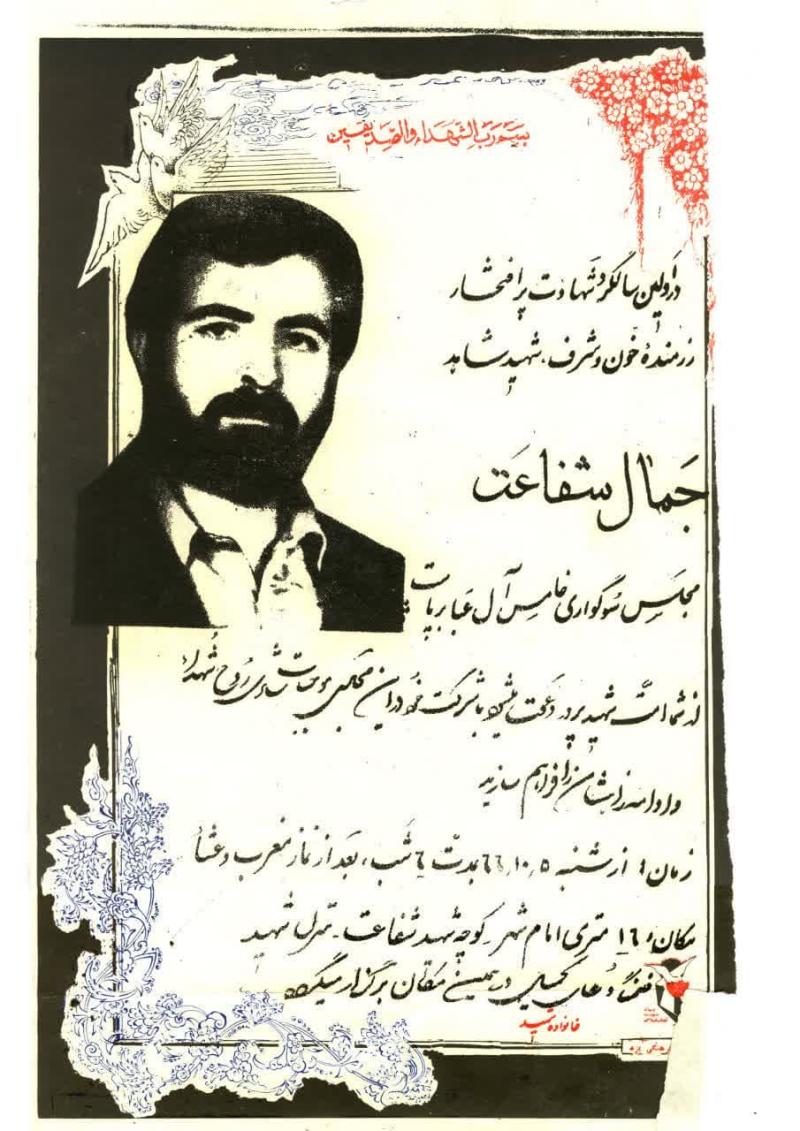 بسم رب الشهداء والصدیقین
در اولین سالگرد شهادت پرافتخار
رزمنده خون و شرف، شهید شاهد
جمال شفاعت
مجلس سوگواری خامس آل عبا برپاست
از شما امت شهید پرور دعوت میشود با شرکت خود در این مجلس موجبات شادی روح شهدا
و ادامه راهشان را فراهم سازید
زمان: از شنبه ۶۶،۱۰،۵ بمدت ۶ شب، بعد از نماز مغرب و عشا
مکان: ۱۶ متری امام شهر، کوچه شهید شفاعت - منزل شهید
دعای کمیل در همین مکان برگزار میگردد
خانواده شهید